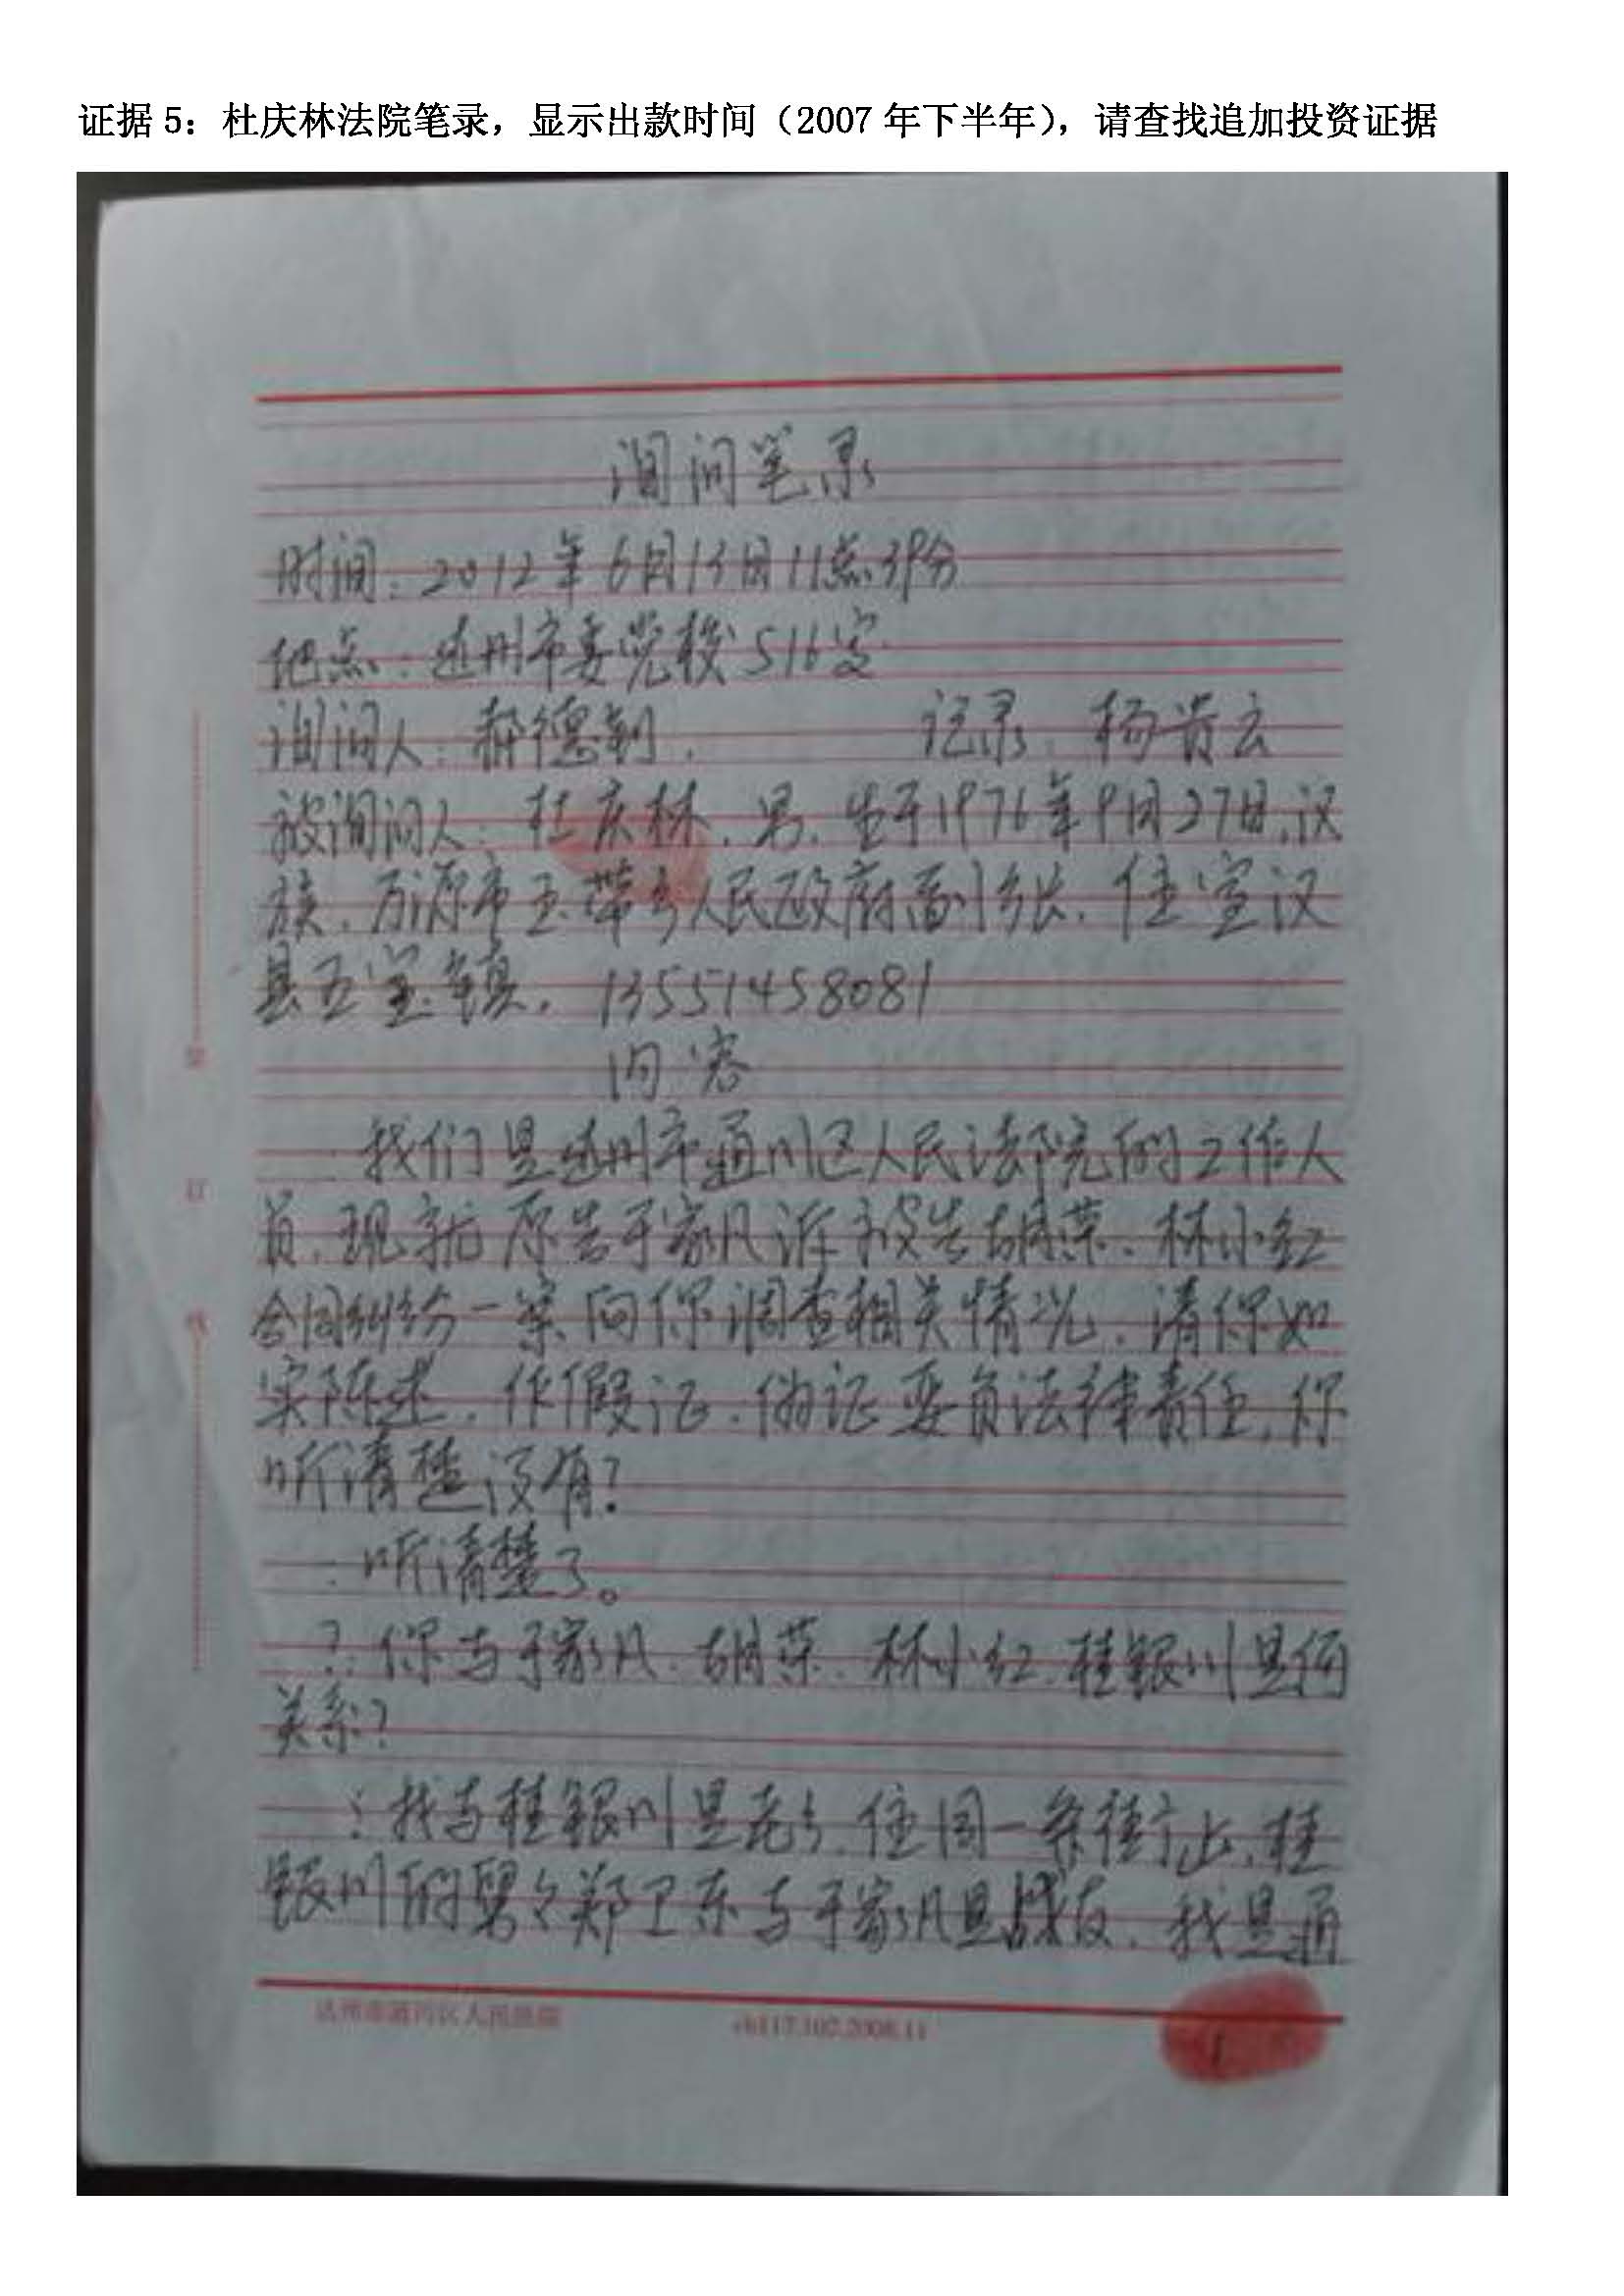 证据 5：杜庆林法院笔录，显示出款时间（2007 年下半年），请查找追加投资证据
询问笔录
时间：2012年6月13日11点39分
地点：达州市委党校516室
询问人：郝德钊. 记录：杨贵云
被询问人：杜庆林，男，生于1976年9月27日，汉
族，万源市玉带乡人民政府副乡长，住宣汉
县五宝镇，13551458081
内容
：我们是达州市通川区人民法院的工作人
员，现就原告于家凡诉被告胡荣、林小红
合同纠纷一案向你调查相关情况，请你如
实陈述，作假证、伪证要负法律责任，你
听清楚没有？
：听清楚了。
？：你与于家凡、胡荣、林小红、桂银川是何
关系？
：我与桂银川是老乡，住同一条街上，桂
银川的舅々郑卫东与于家凡是战友，我是通
装
订
线
达州市通川区人民法院
1